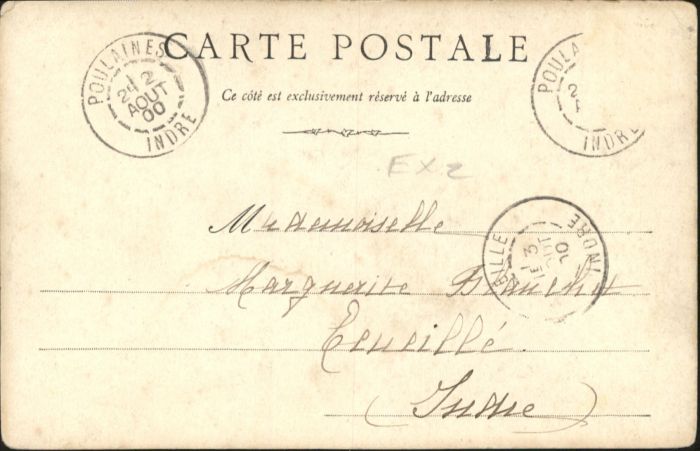 CARTE POSTALE
Ce côté est exclusivement réservé à l'adresse
POULAINES
2E
12
AOUT
00
INDRE
POULA
2
INDRE
EX2
Mademoiselle
Marguerite Blanchet
INDRE
3
00
(Indre)